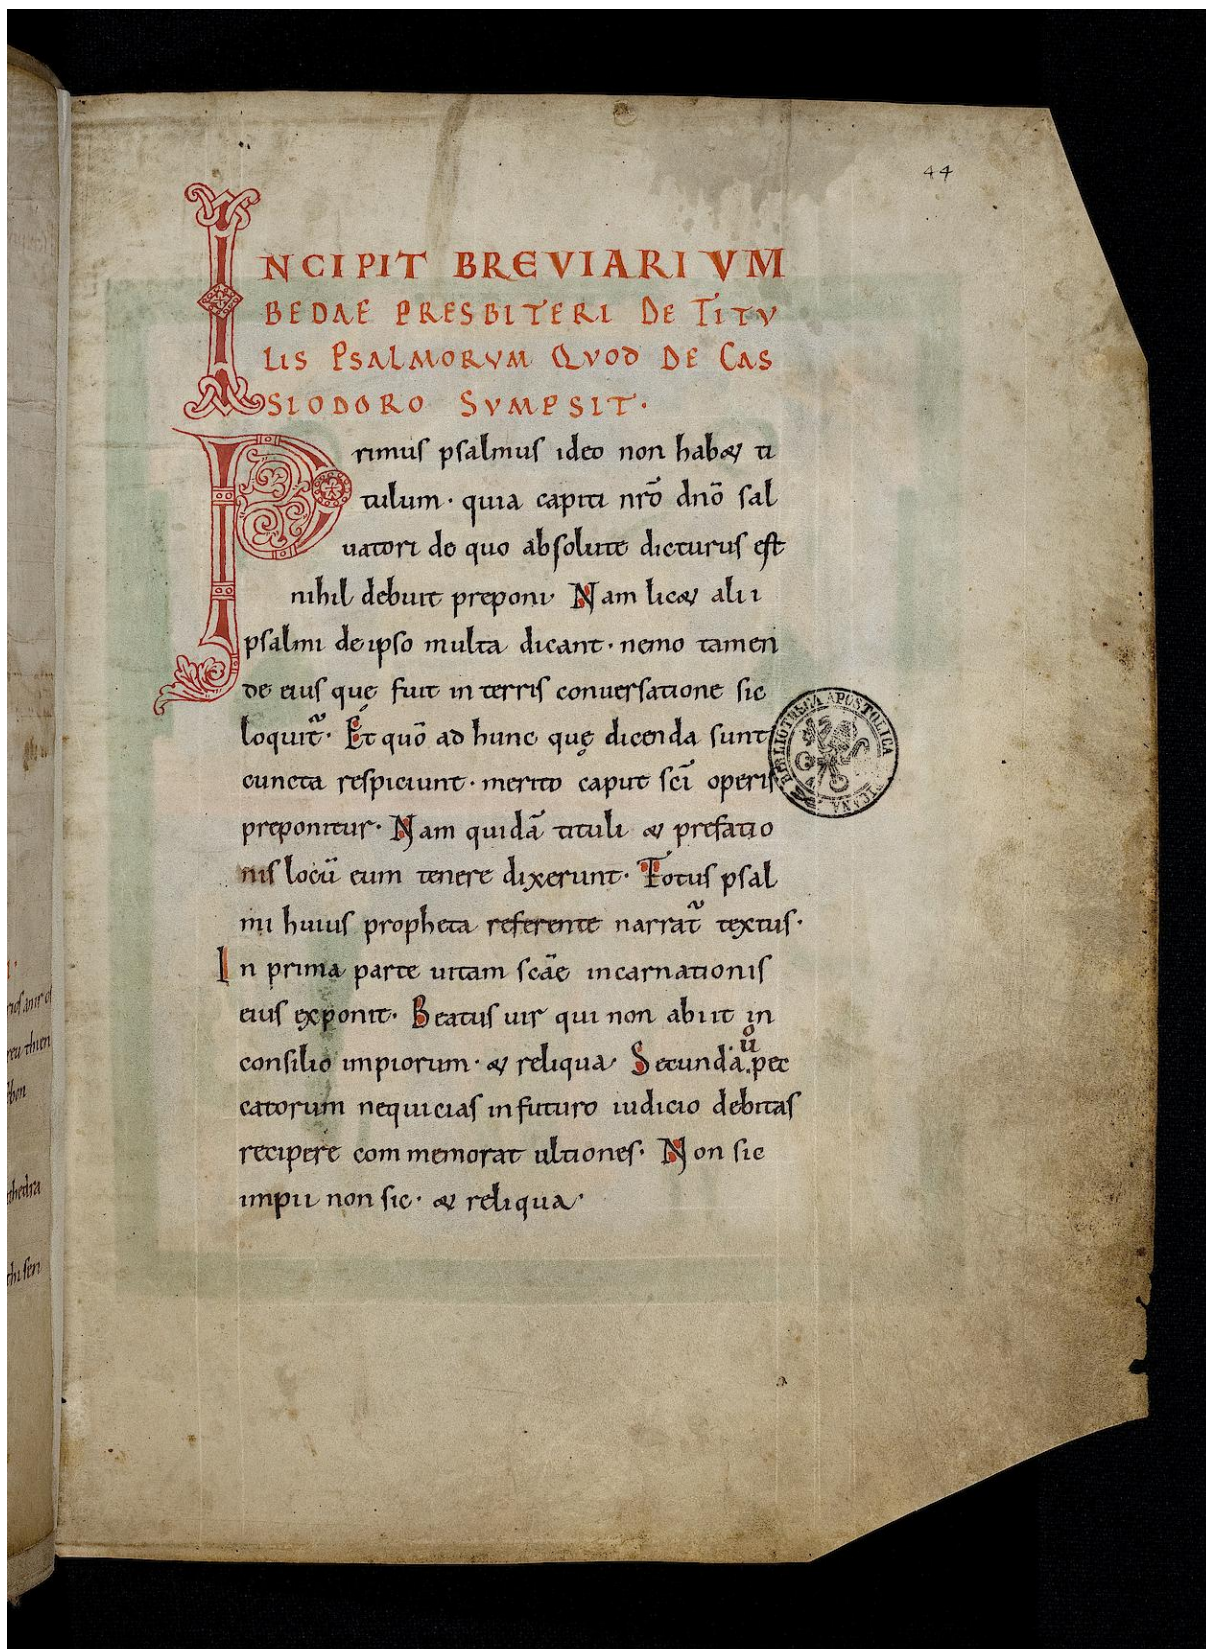 44
INCIPIT BREVIARIVM
BEDAE PRESBITERI DE TITV
LIS PSALMORVM QVOD DE CAS
SIODORO SVMPSIT·
Primus psalmus ideo non hab& ti
tulum· quia capiti nrō dnō sal
uatori de quo absolute dicturus est
nihil debuit preponi· Nam lic& alii
psalmi de ipso multa dicant· nemo tamen
de eius quę fuit in terris conuersatione sic
loquit̄· Et quō ad hunc quę dicenda sunt
cuncta respiciunt· merito caput scī operis
preponitur· Nam quidā tituli & prefatio
nis locū eum tenere dixerunt· Totus psal
mi huius propheta referente narrat̄ textus·
In prima parte uitam scāe incarnationis
eius exponit· Beatus uir qui non abiit in
consilio impiorum· & reliqua· Secunda ů pec
catorum nequicias in futuro iudicio debitas
recipere commemorat ultiones· Non sic
impii non sic· & reliqua·
BIBLIOTHECA APOSTOLICA VATICANA